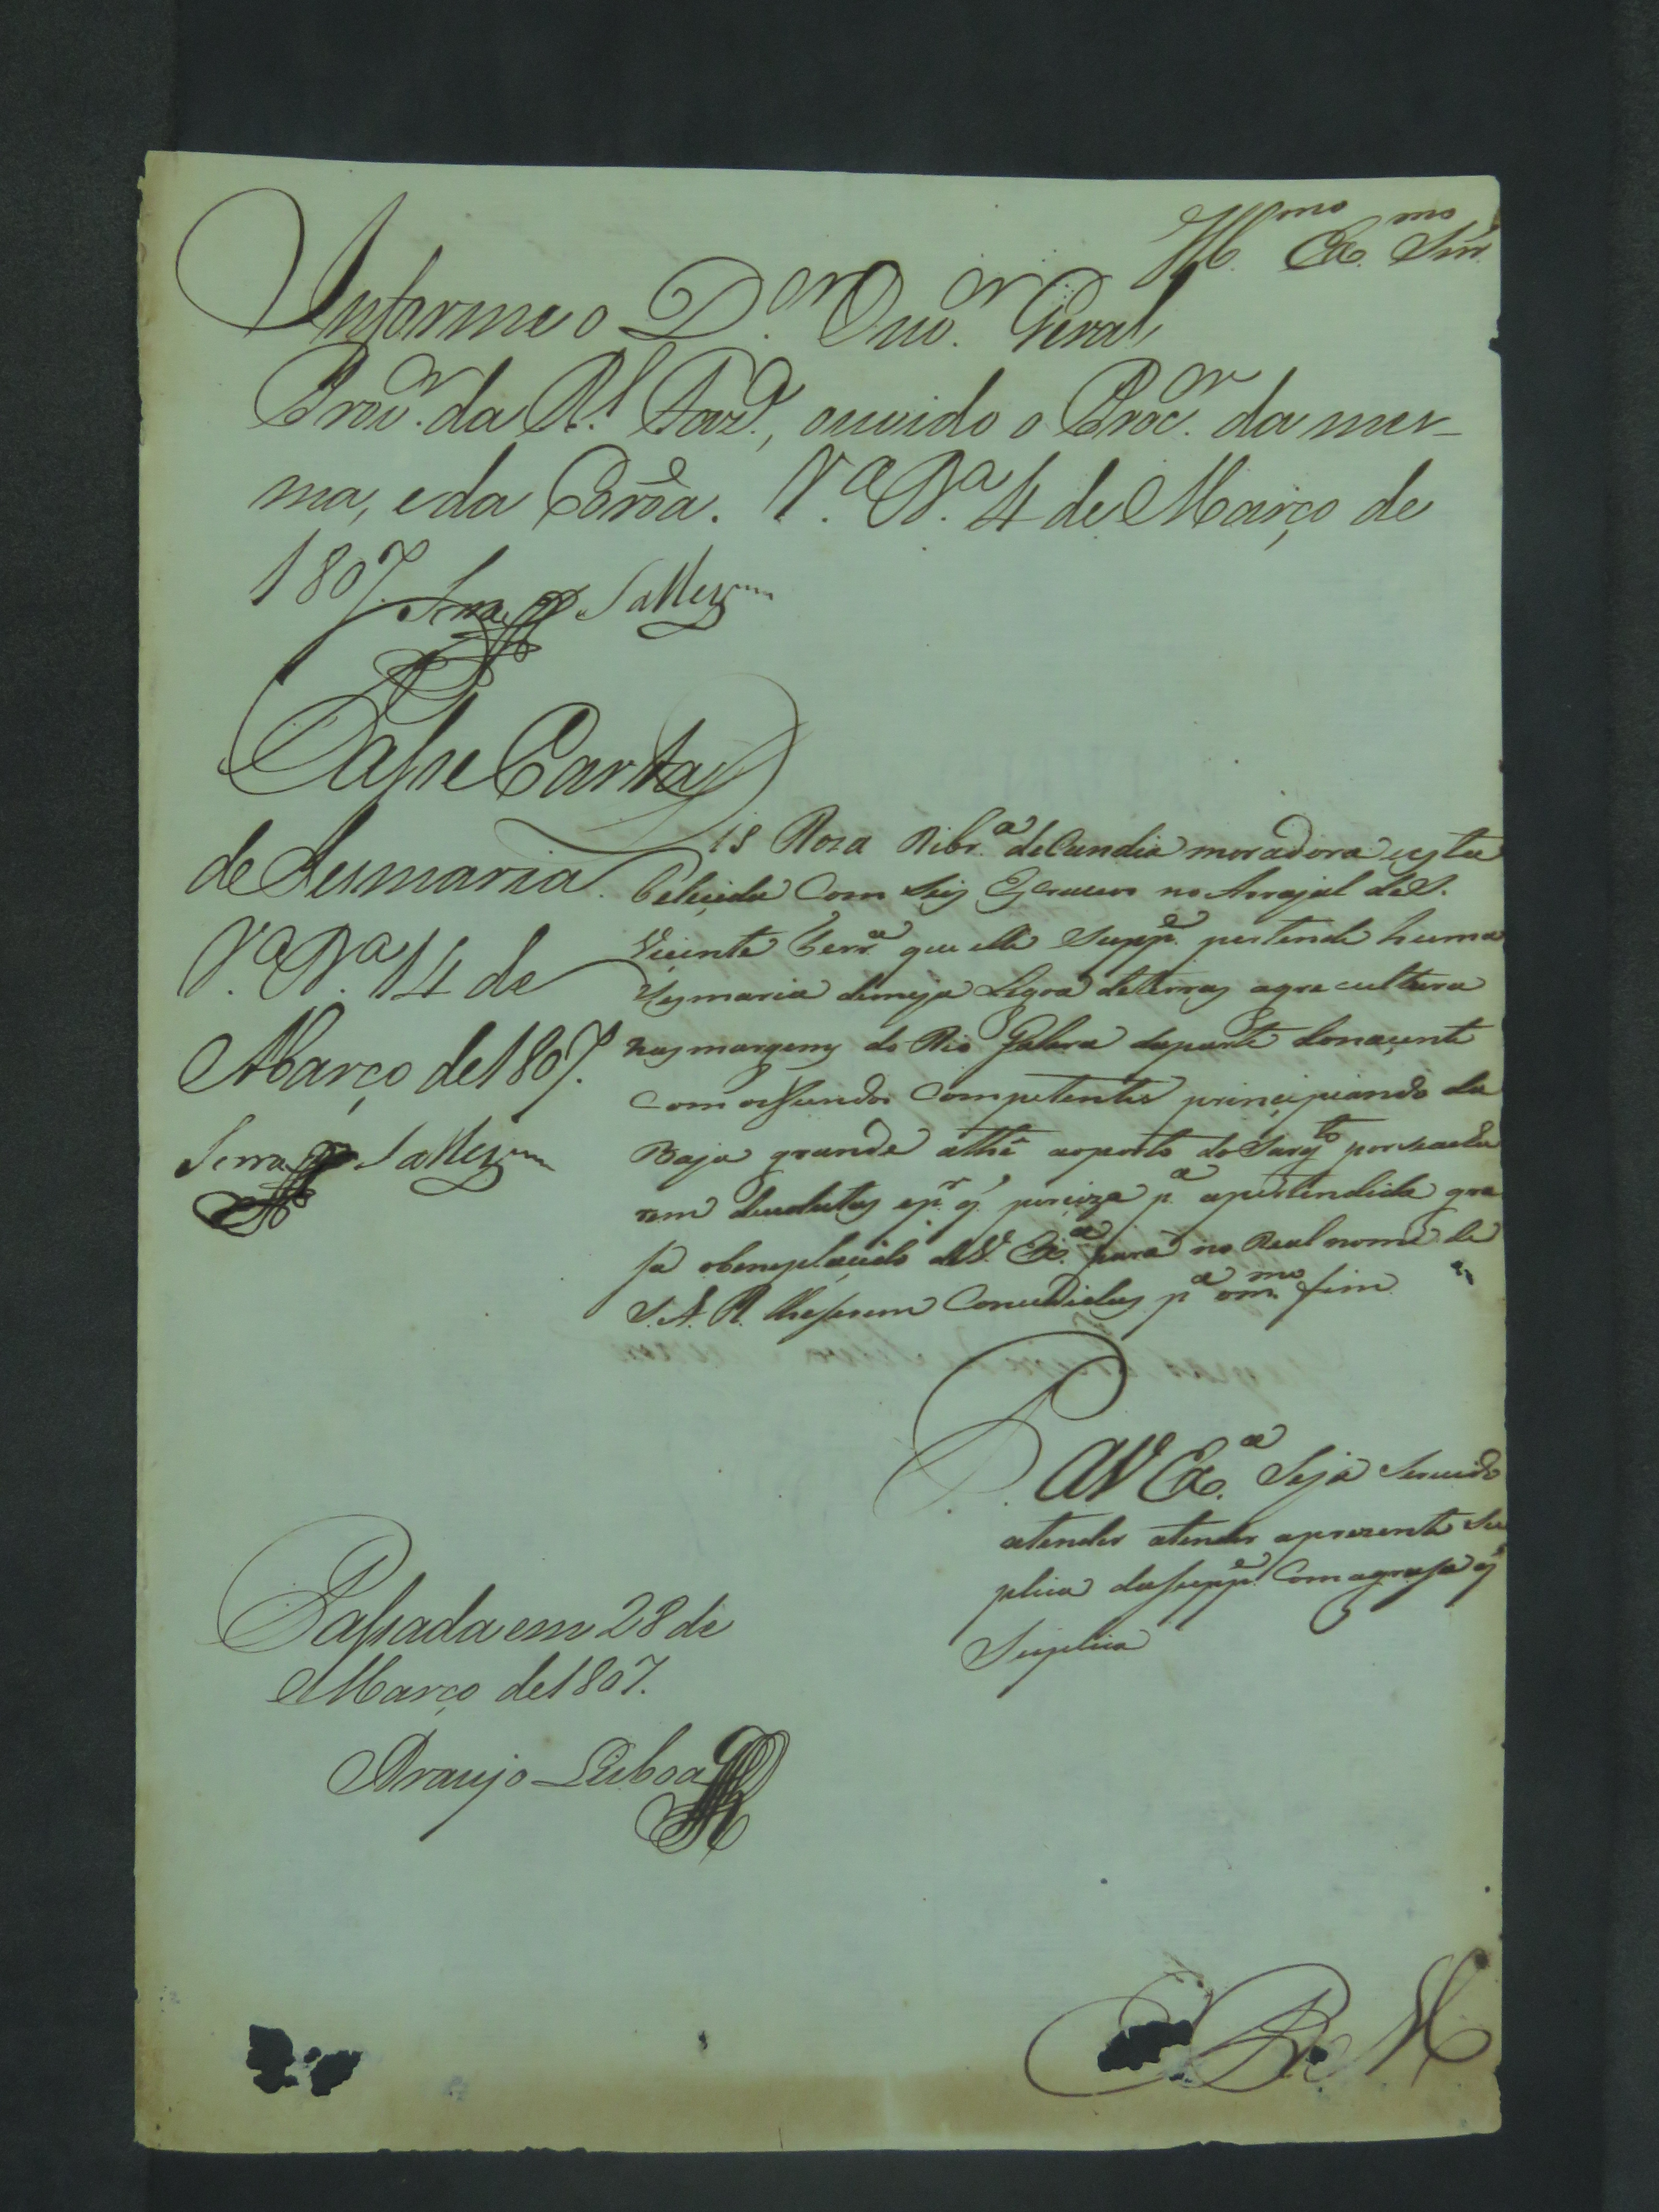 Ill.mo Ex.mo Snr.
Informe o D.or Ouv.or Geral
Prov.or da R.l Faz.a, ouvido o Proc.or da mes-
ma, e da Corôa. V.a B.a 4 de Março de
1807.
Passe Carta
de Sesmaria.
V.a B.a 14 de
Março de 1807.
Dis Roza Ribr.a de Candia moradora e esta
belecida Com Seis Escravos no Arrajal de S.
Vicente Ferr.a que ella Supp.e pertende huma
Sesmaria de meja Legoa de terras agrecultura
nas margens do Rio Galera da parte do nacente
com os fundos Competentes principiando da
Baja grande athé ao porto do Sarg.to por se acha
rem devolutas e p.r q' perciza p.a a pertendida gra
sa o beneplacido de V. Ex.a para no Real nome de
S. A. R. lhe serem Concedidas p.a o m.mo fim
P. a V Ex.a Seja Servido
atender atender a prezente Su
plica da supp.e Com a grasa q'
Suplica
Passada em 28 de
Março de 1807.
Araujo Lisboa
E R M